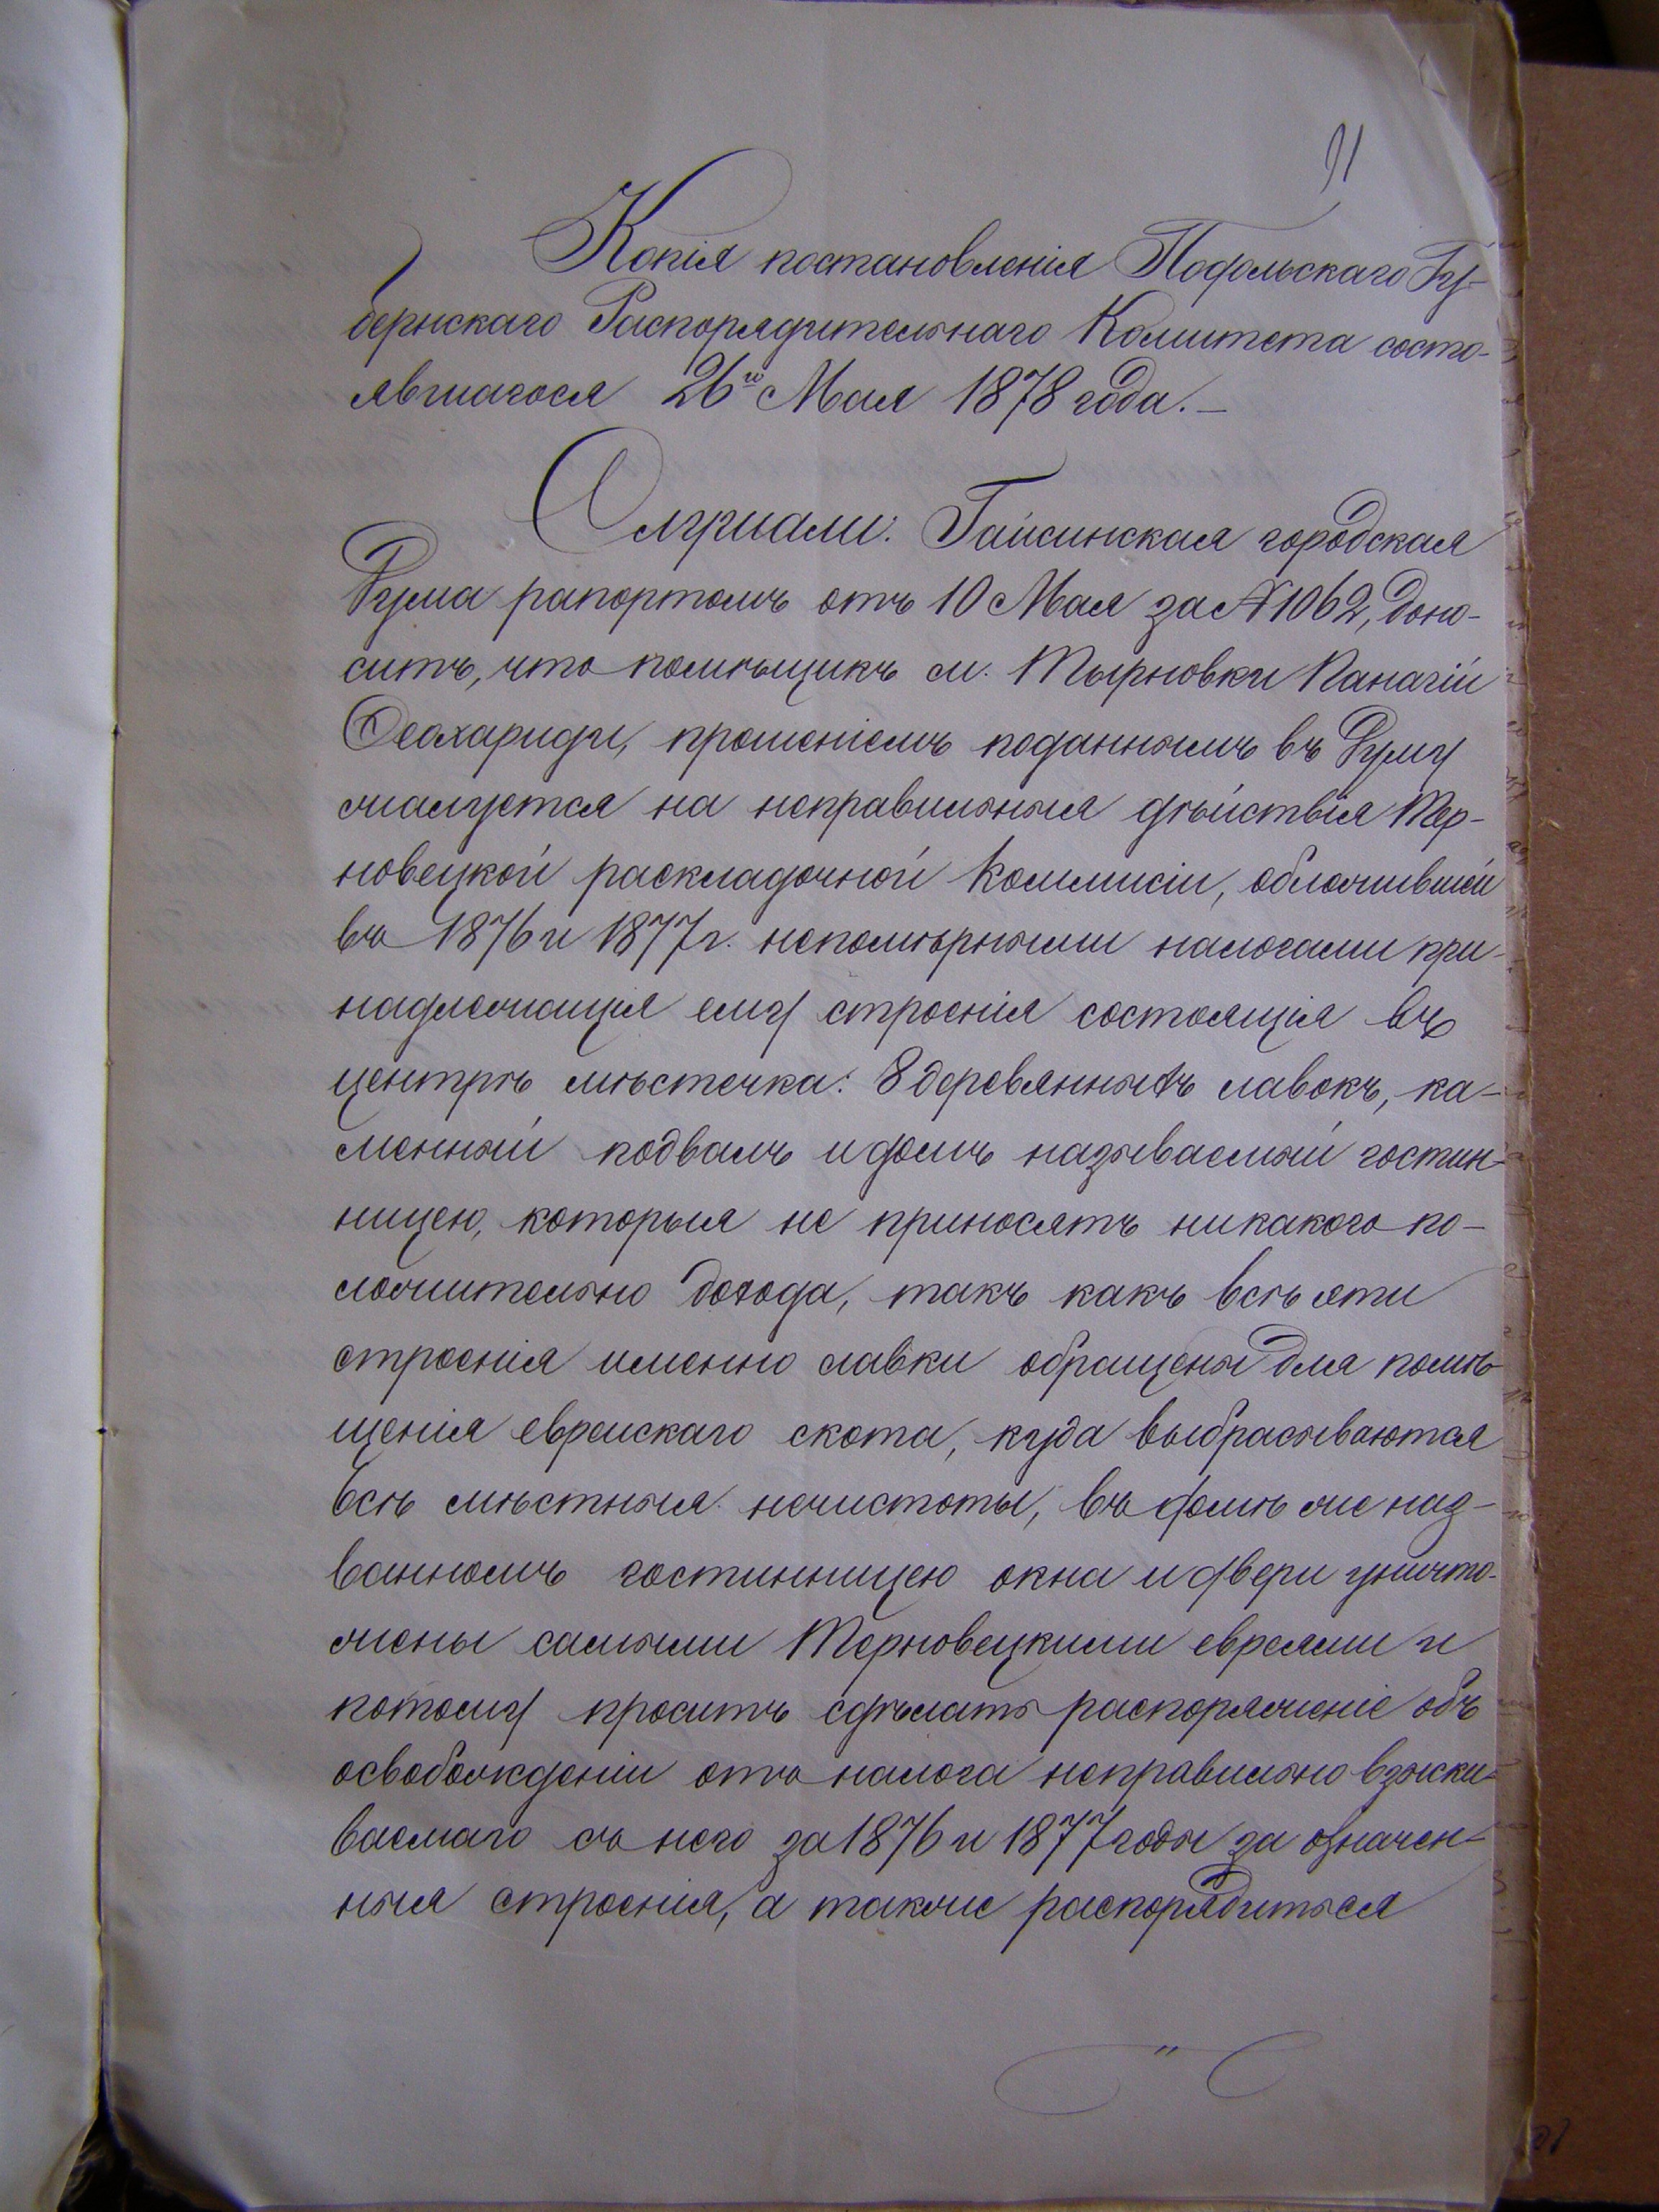 91
Копія постановленія Подольскаго Гу-
бернскаго Распорядительнаго Комитета состо-
явшагося 26го Мая 1878 года. —
Слушали: Гайсинская городская
Дума рапортомъ отъ 10 Мая за № 1062, доно-
ситъ, что помѣщикъ м. Тырновки Панагій
Ѳеохариди, прошеніемъ поданнымъ въ Думу
жалуется на неправильныя дѣйствія Тер-
новецкой раскладочной Коммисіи, обложившей
въ 1876 и 1877 г. непомѣрными налогами при-
надлежащія ему строенія состоящія въ
центрѣ мѣстечка: 8 деревянныхъ лавокъ, ка-
менный подвалъ и домъ называемый гостин-
ницею, которыя не приносятъ никакого по-
ложительно дохода, такъ какъ всѣ эти
строенія именно лавки обращены для помѣ-
щенія еврейскаго скота, куда выбрасываются
всѣ мѣстныя нечистоты, въ домѣ же наз-
ванномъ гостинницею окна и двери уничто-
жены самыми Терновецкими евреями и
потому проситъ сдѣлать распоряженіе объ
освобожденіи отъ налога неправильно взыски-
ваемаго съ него за 1876 и 1877 годы за означен-
ныя строенія, а также распорядиться